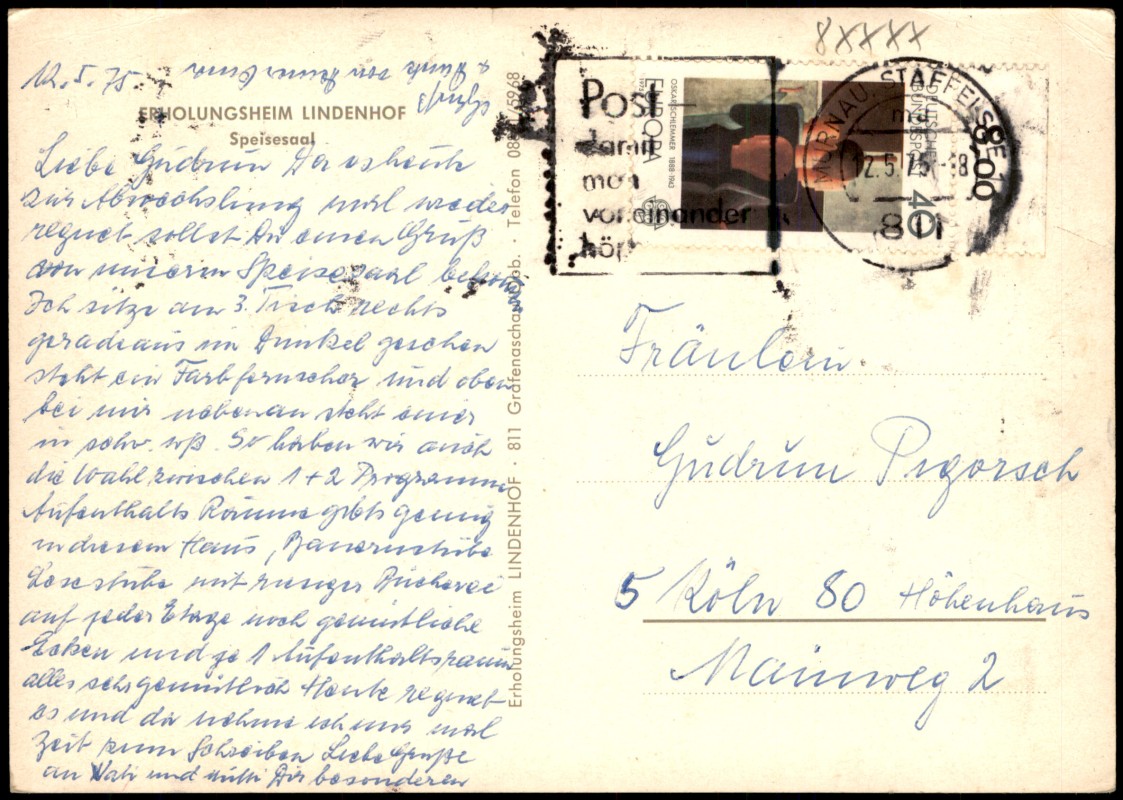 8XXXX
12.5.75
ERHOLUNGSHEIM LINDENHOF
Speisesaal
Liebe Gudrun Da es heute
zur Abwechslung mal wieder
regnet sollst Du einen Gruß
von unserm Speisesaal
Ich sitze am 3. Tisch rechts
geradeaus im Dunkel gesehen
steht ein Farbfernseher und oben
bei mir nebenan steht einer
in schw. wß. So haben wir auch
die Wahl zwischen 1+2 Programme
Aufenthalts Räume gibts genug
in diesem Haus, Bauernstube
Lesestube mit riesiger Bücherei
auf jeder Etage noch gemütliche
Ecken und je 1 Aufenthaltsraum
alles sehr gemütlich Heute regnet
es und da nehme ich mir mal
Zeit zum Schreiben Liebe Grüße
an Vati und Mutti Dir besonderen
Gruß
von Deiner Oma
Erholungsheim LINDENHOF · 811 Grafenaschau/Obb. · Telefon
Post
damit
man
voneinander
hört
OSKAR SCHLEMMER 1888-1943
EUROPA
DEUTSCHE
BUNDESPOST
40
MURNAU, STAFFELSEE
12.5.75-18
811
8.00
Fräulein
Gudrun Pigorsch
5 Köln 80 Höhenhaus
Mainweg 2